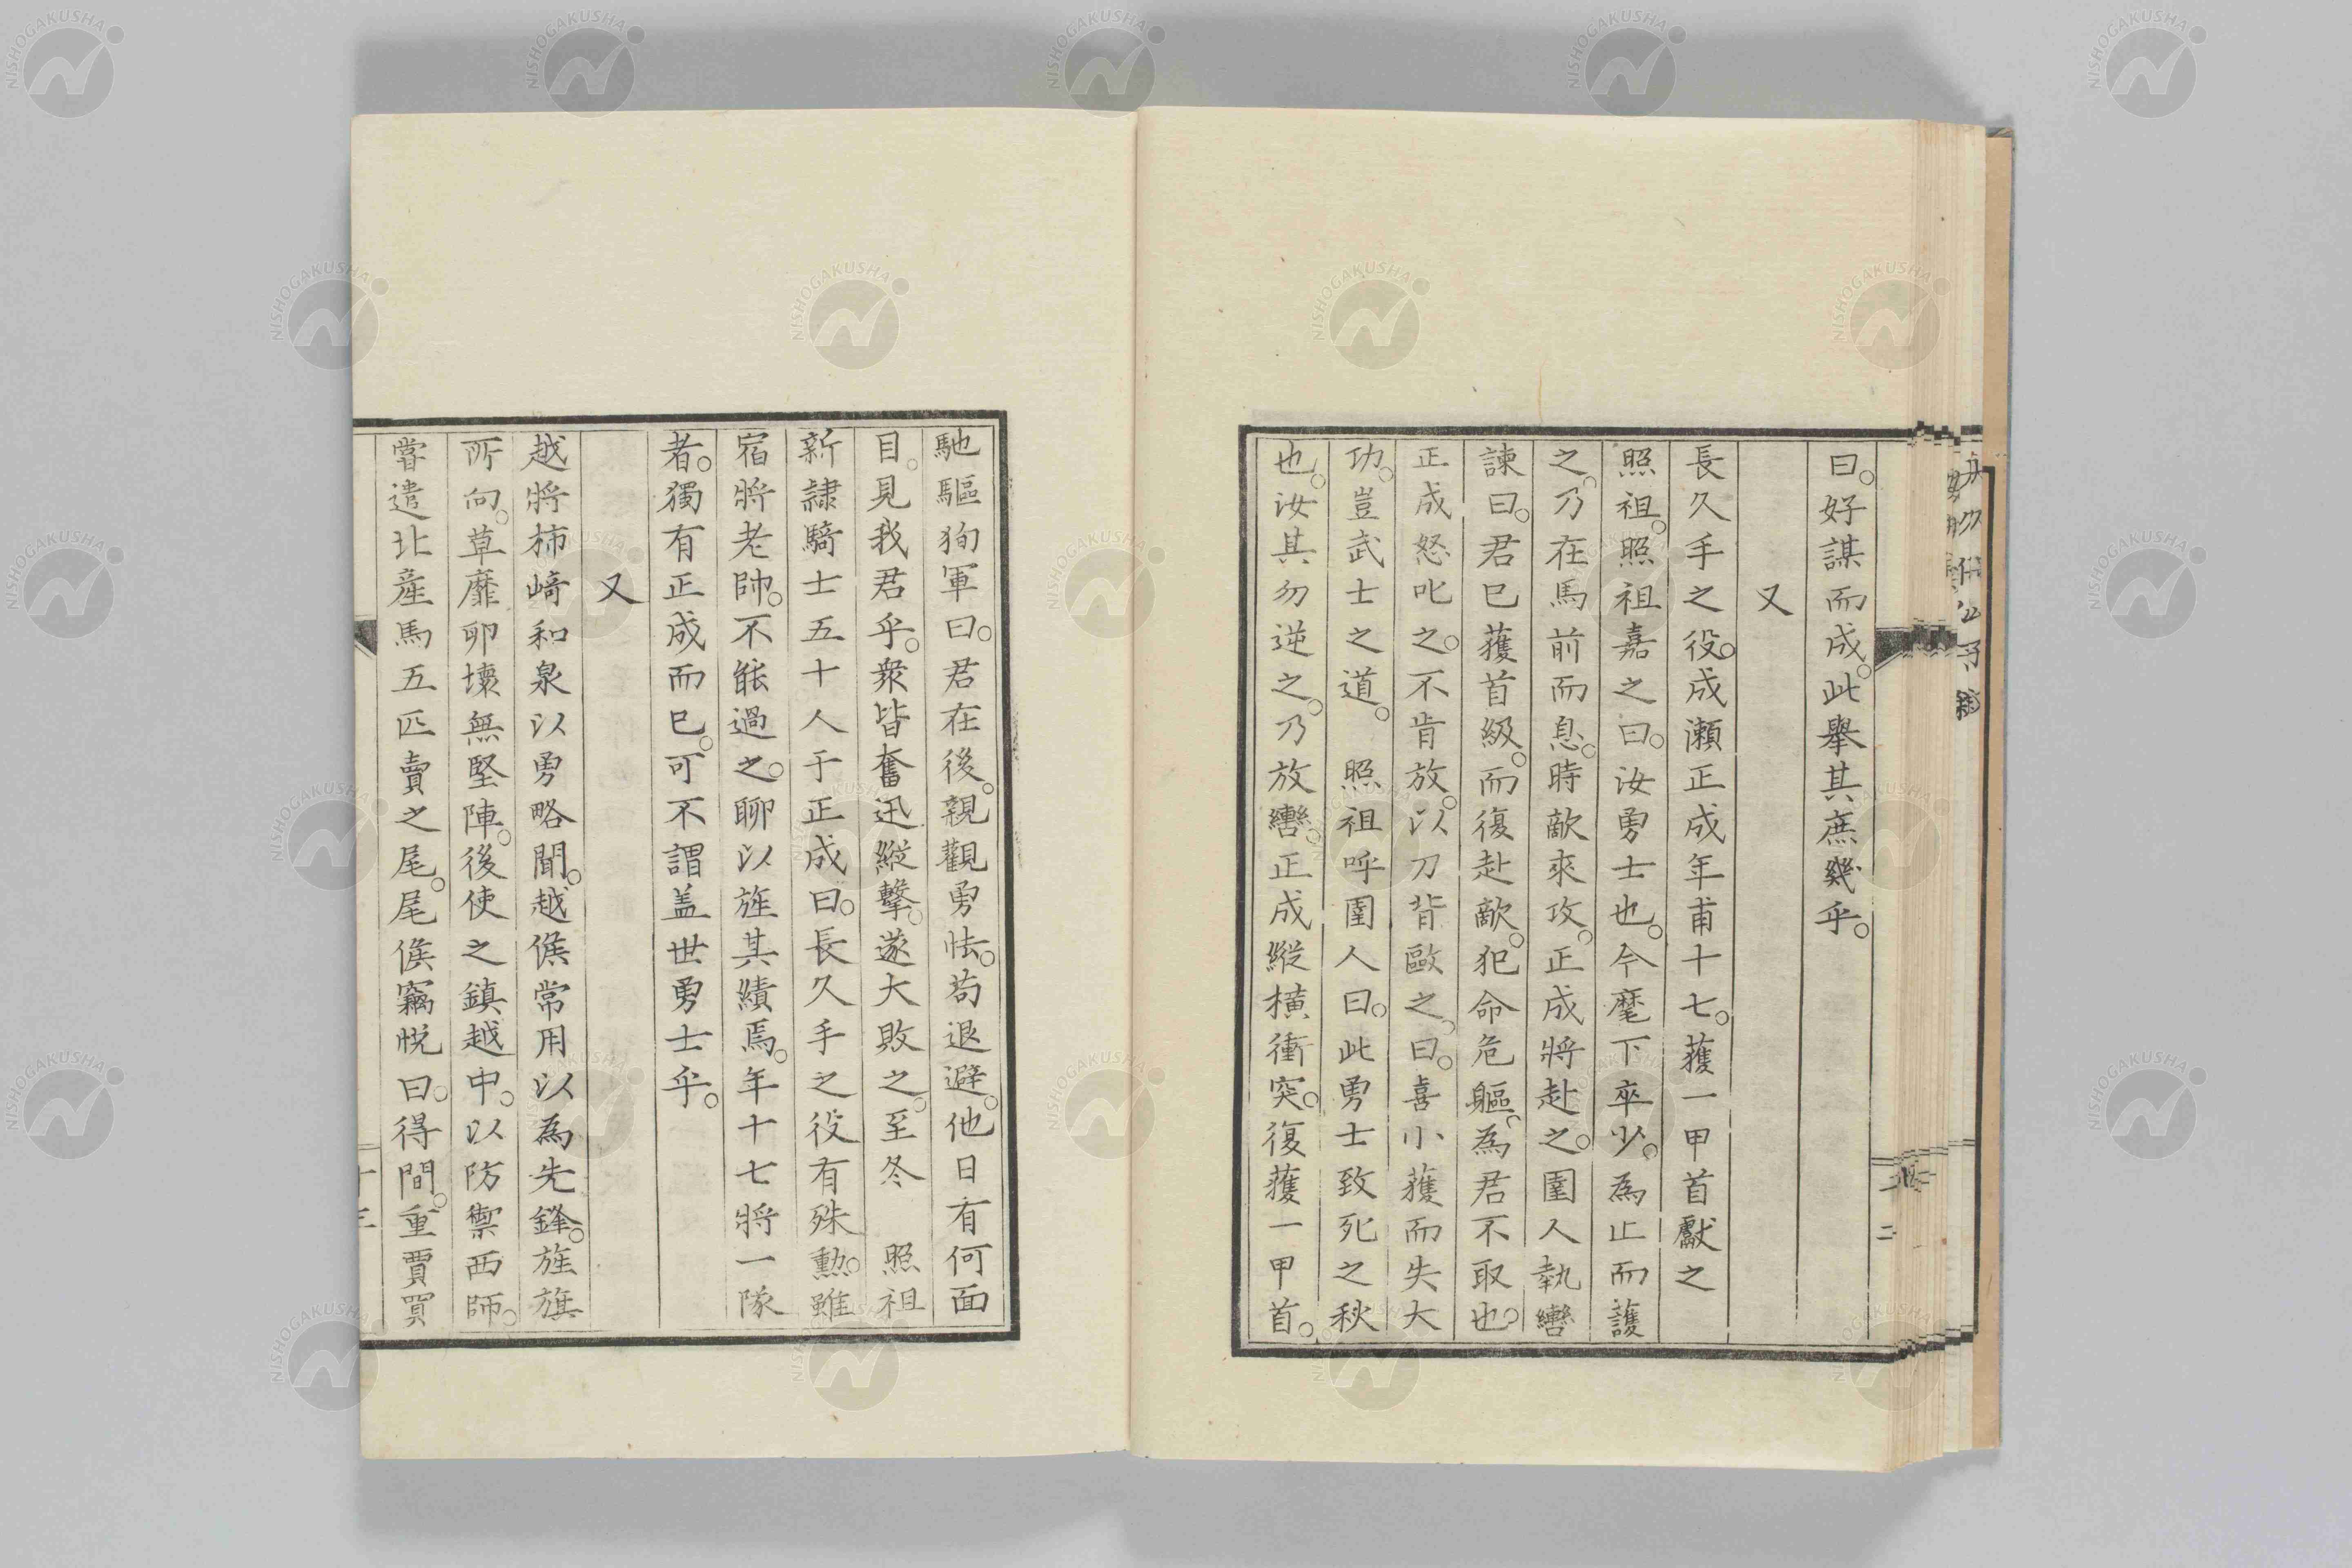 曰。好謀而成。此舉其庶幾乎。
又
長久手之役。成瀬正成年甫十七。獲一甲首獻之
照祖。照祖嘉之曰。汝勇士也。今麾下卒少。為止而護
之。乃在馬前而息。時敵來攻。正成將赴之。圉人執轡
諫曰。君已獲首級。而復赴敵。犯命危軀。為君不取也。
正成怒叱之。不肯放。以刀背歐之。曰。喜小獲而失大
功。豈武士之道。　照祖呼圉人曰。此勇士致死之秋
也。汝其勿逆之。乃放轡。正成縱橫衝突。復獲一甲首。
馳驅徇軍曰。君在後。親觀勇怯。苟退避。他日有何面
目。見我君乎。衆皆奮迅縱擊。遂大敗之。至冬　照祖
新隷騎士五十人于正成曰。長久手之役有殊勲。雖
宿將老帥。不能過之。聊以旌其績焉。年十七將一隊
者。獨有正成而已。可不謂盖世勇士乎。
又
越將柿﨑和泉以勇略聞。越侯常用以為先鋒。旌旗
所向。草靡卵壞無堅陣。後使之鎮越中。以防禦西師。
嘗遣北産馬五匹賣之尾。尾侯竊悦曰。得間。重賈買
十三
NISHOGAKUSHA